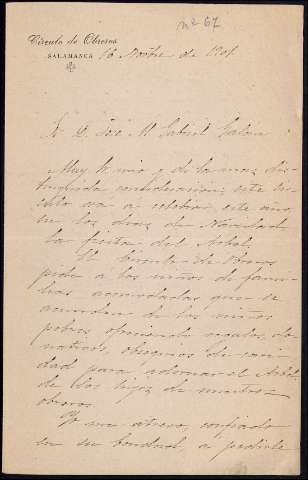 nº 67
Círculo de Obreros
SALAMANCA
16 Novbre de 1901
D. José Mª Gabriel Galán
Muy Sr. mio y de la mas dis-
tinguida consideracion: este Cir-
culo va á celebrar este año,
en los dias de Navidad
la fiesta del Arbol.
El Circulo de Obreros
pide á los niños de fami-
lias acomodadas que se
acuerden de los niños
pobres ofreciendo regalos, do-
nativos, obsequios de cari-
dad para adornar el Arbol
de los hijos de nuestros
obreros.
Yo me atrevo, confiado
en su bondad, a pedirle